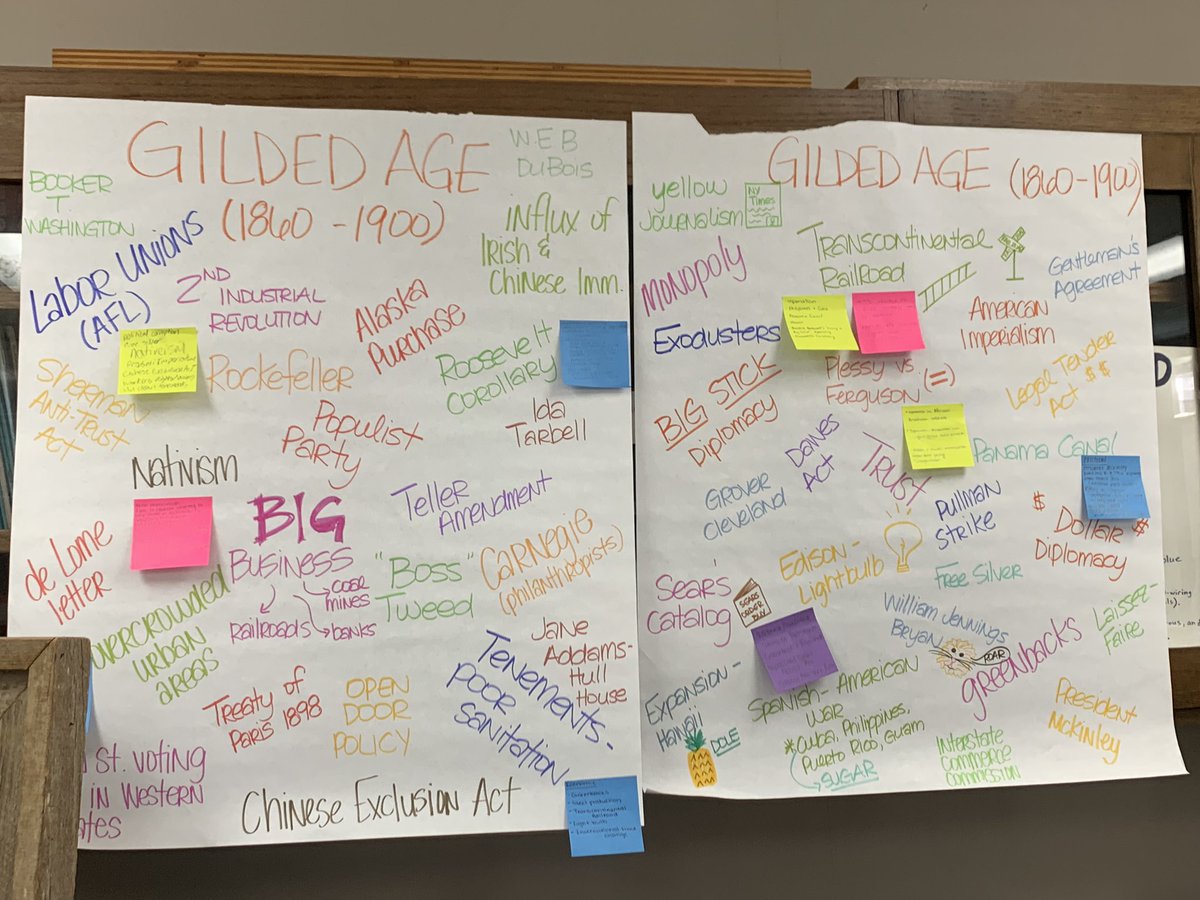 GILDED AGE
(1860 - 1900)
WEB
DuBois
BOOKER
T
WASHINGTON
LABOR UNIONS
(AFL)
2ND
INDUSTRIAL
REVOLUTION
influx of
Irish &
Chinese Imm.
Alaska
Purchase
Sherman
Anti-Trust
Act
Nativism
Rockefeller
Roosevelt
Corollary
Populist
Party
Ida
Tarbell
Nativism
de Lome
letter
BIG
Business
Railroads
coal
mines
banks
Teller
Amendment
"Boss"
Tweed
Carnegie
(philanthropists)
overcrowded
urban
areas
Treaty of
Paris 1898
OPEN
DOOR
POLICY
Tenements-
poor
sanitation
Jane
Addams-
Hull
House
st. voting
in Western
Chinese Exclusion Act
GILDED AGE
(1860-1900)
yellow
Journalism
NY
Times
Transcontinental
Railroad
Gentlemen's
Agreement
Monopoly
Exodusters
American
Imperialism
BIG STICK
Diplomacy
Plessy vs.
Ferguson (=)
Legal Tender
Act $$
Dawes
Act
TRUST
Panama Canal
Grover
Cleveland
Pullman
Strike
$ Dollar $
Diplomacy
Edison -
Lightbulb
Free Silver
Sears
Catalog
SEARS
ORDER
BUY
William Jennings
Bryan
ROAR
greenbacks
Laissez-
Faire
Expansion -
Hawaii
DOLE
Spanish-American
War
*Cuba, Philippines,
Puerto Rico, Guam
SUGAR
Interstate
Commerce
Commission
President
McKinley